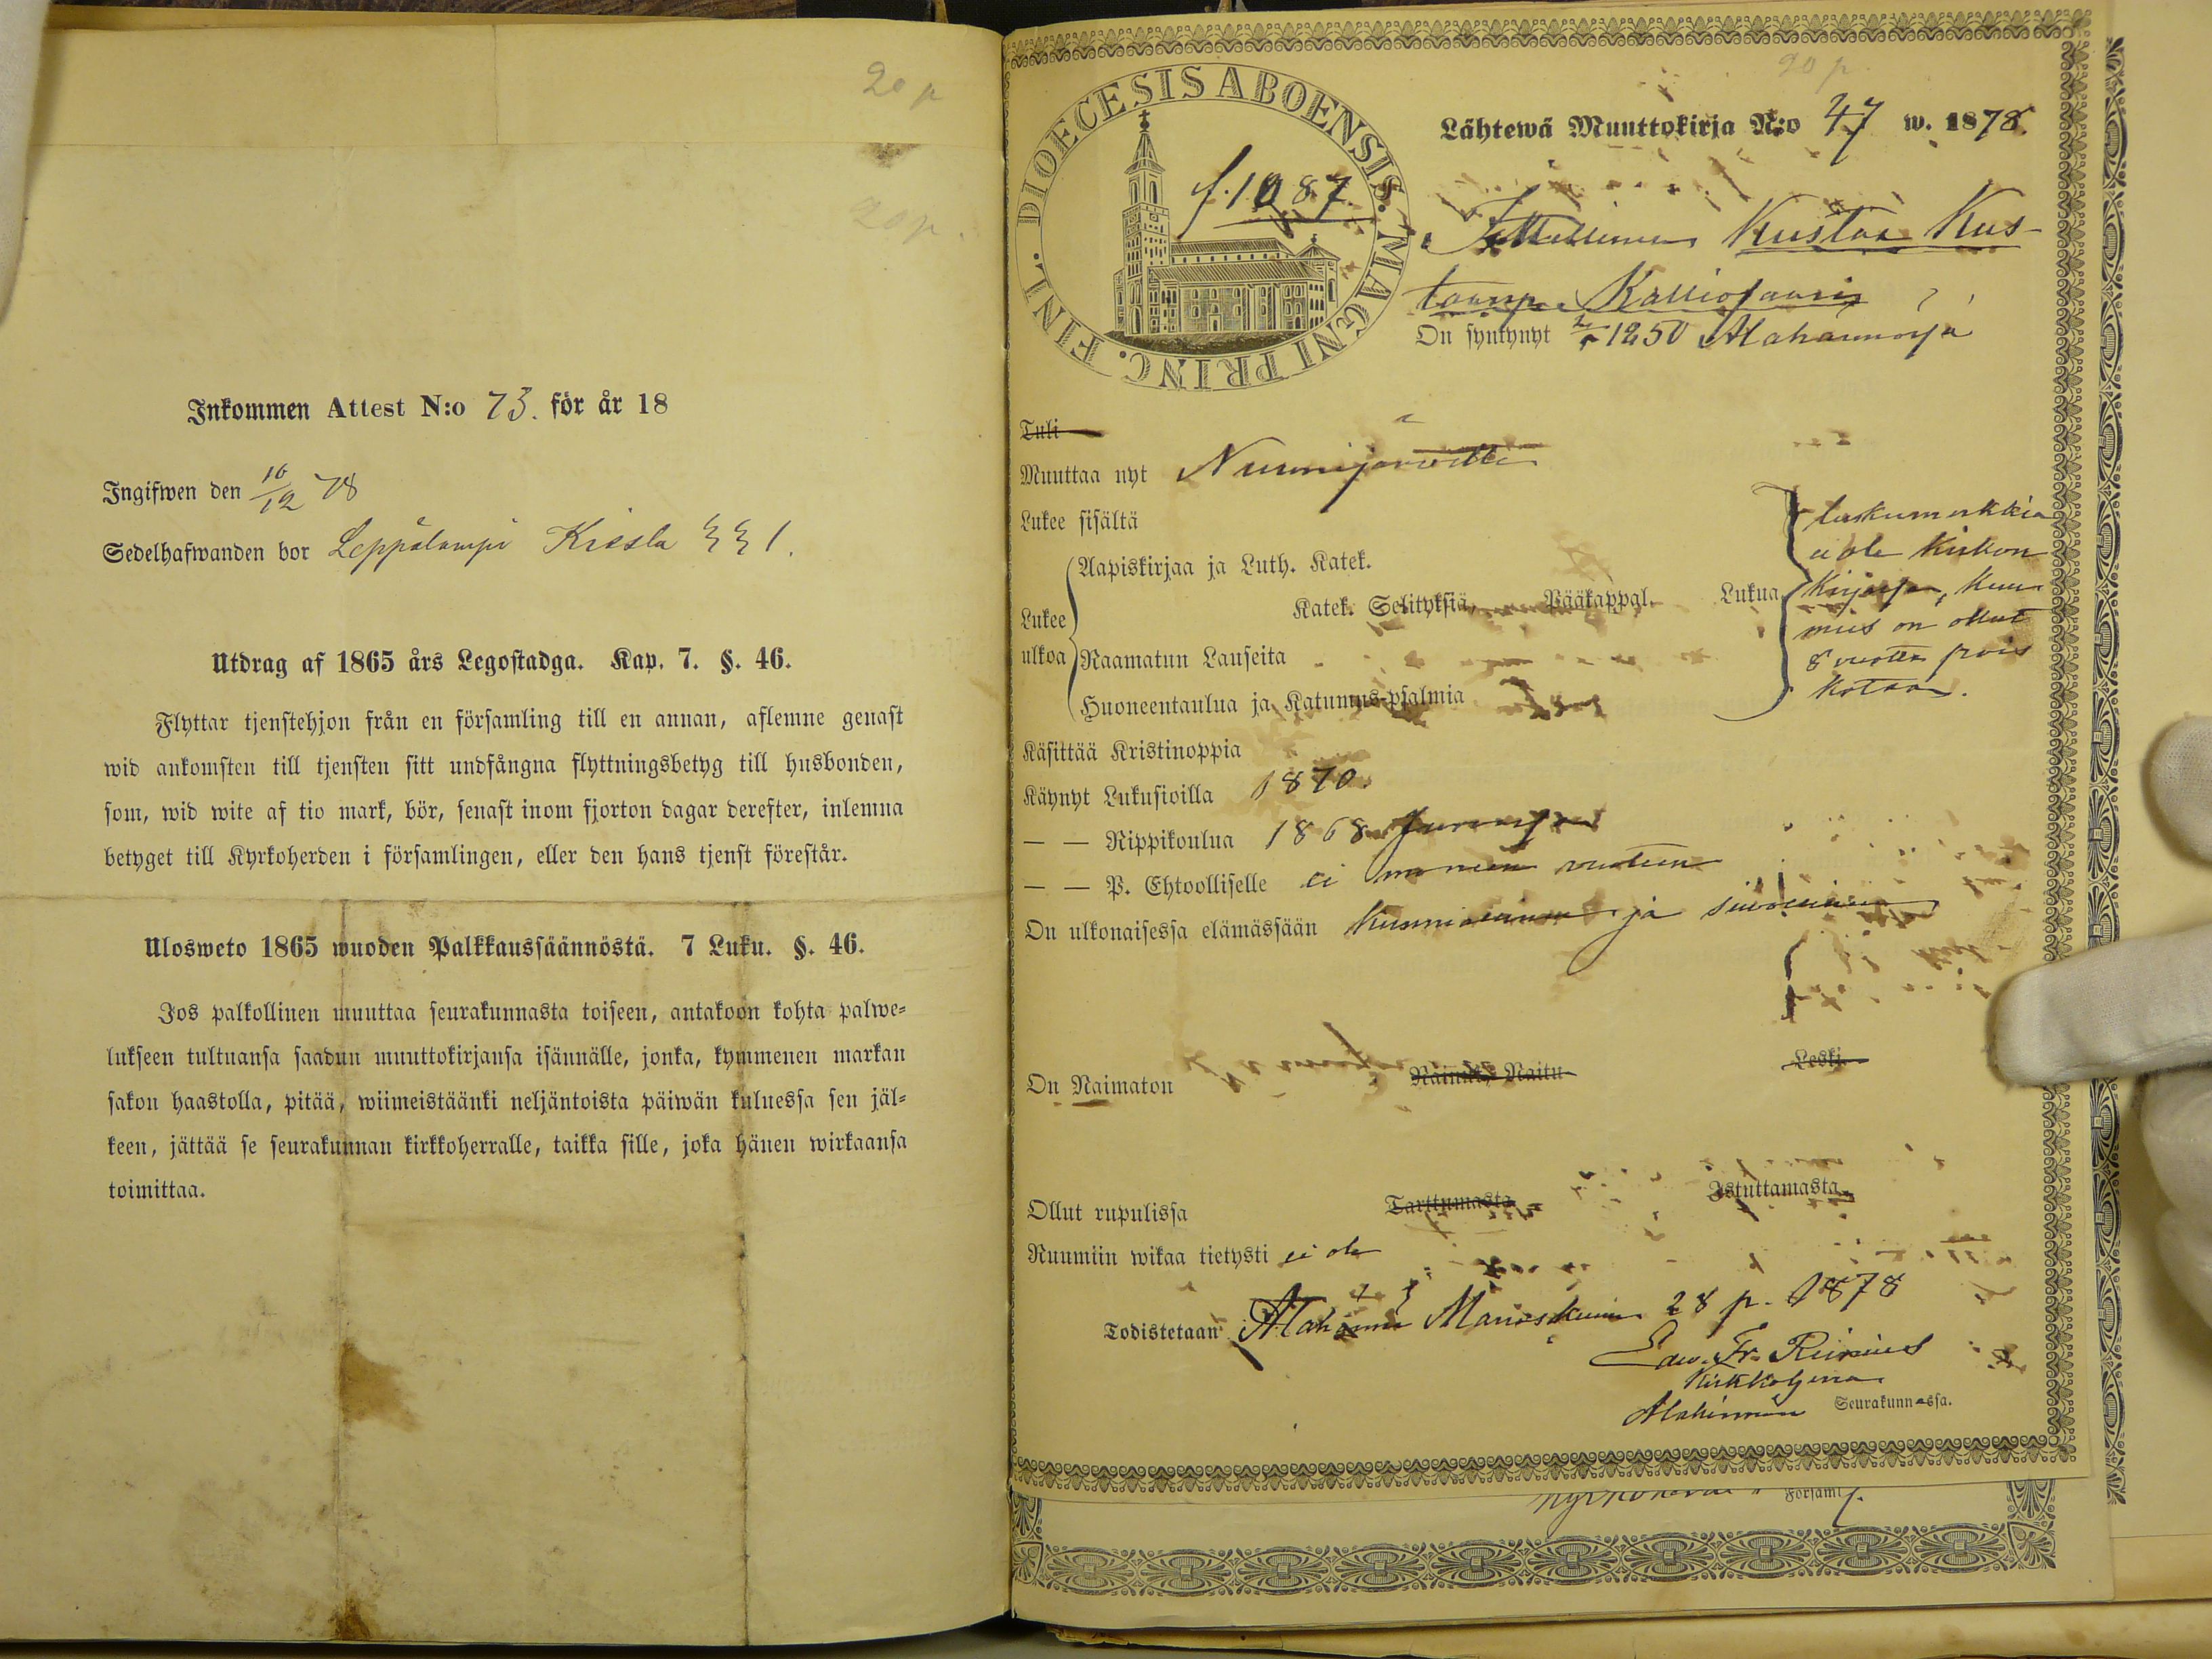 20 p
20 p.
Inkommen Attest N:o 73. för år 18
Ingifwen den 10/12 78
Sedelhafwanden bor Leppälampi Kiesla ξξ 1.
Utdrag af 1865 års Legostadga. Kap. 7. §. 46.
Flyttar tjenstehjon från en församling till en annan, aflemne genast
wid ankomsten till tjensten sitt undfångna flyttningsbetyg till husbonden,
som, wid wite af tio mark, bör, senast inom fjorton dagar derefter, inlemna
betyget till Kyrkoherden i församlingen, eller den hans tjenst förestår.
Ulosweto 1865 wuoden Palkkaussäännöstä. 7 Luku. §. 46.
Jos palkollinen muuttaa seurakunnasta toiseen, antakoon kohta palwe=
lukseen tultuansa saadun muuttokirjansa isännälle, jonka, kymmenen markan
sakon haastolla, pitää, wiimeistäänki neljäntoista päiwän kuluessa sen jäl=
keen, jättää se seurakunnan kirkkoherralle, taikka sille, joka hänen wirkaansa
toimittaa.
20 p.
DIOECESIS ABOENSIS. MAGNI PRINC. FINL.
f. 1087.
Lähtewä Muuttokirja N:o 47 w. 1878.
Itsellinen Kustaa Kus-
taanp. Kalliosaari
On syntynyt 1850 Alahärmässä
Tuli
Muuttaa nyt Nurmijärvelle
Lukee sisältä
Lukee ulkoa
Aapiskirjaa ja Luth. Katek.
Katek. Selityksiä, Pääkappal.
Raamatun Lauseita
Huoneentaulua ja Katumus-psalmia
Lukua
lukumerkkiä
ei ole Kirkon
Kirjassa, kun
mies on ollut
8 vuotta pois
kotoa.
Käsittää Kristinoppia
Käynyt Lukusioilla 1870.
— — Rippikoulua 1868
— — P. Ehtoolliselle ei moneen vuoteen
On ulkonaisessa elämässään Kunniallinen ja siivollinen
On Naimaton
Nainut, Naitu
Leski
Ollut rupulissa
Tarttumasta
Istuttamasta
Ruumiin wikaa tietysti ei ole
Todistetaan Alahärmä Marraskuun 28 p. 1878
Edv. Fr. Reinius
Kirkkoherra
Alahärmän Seurakunnassa.
Församl.